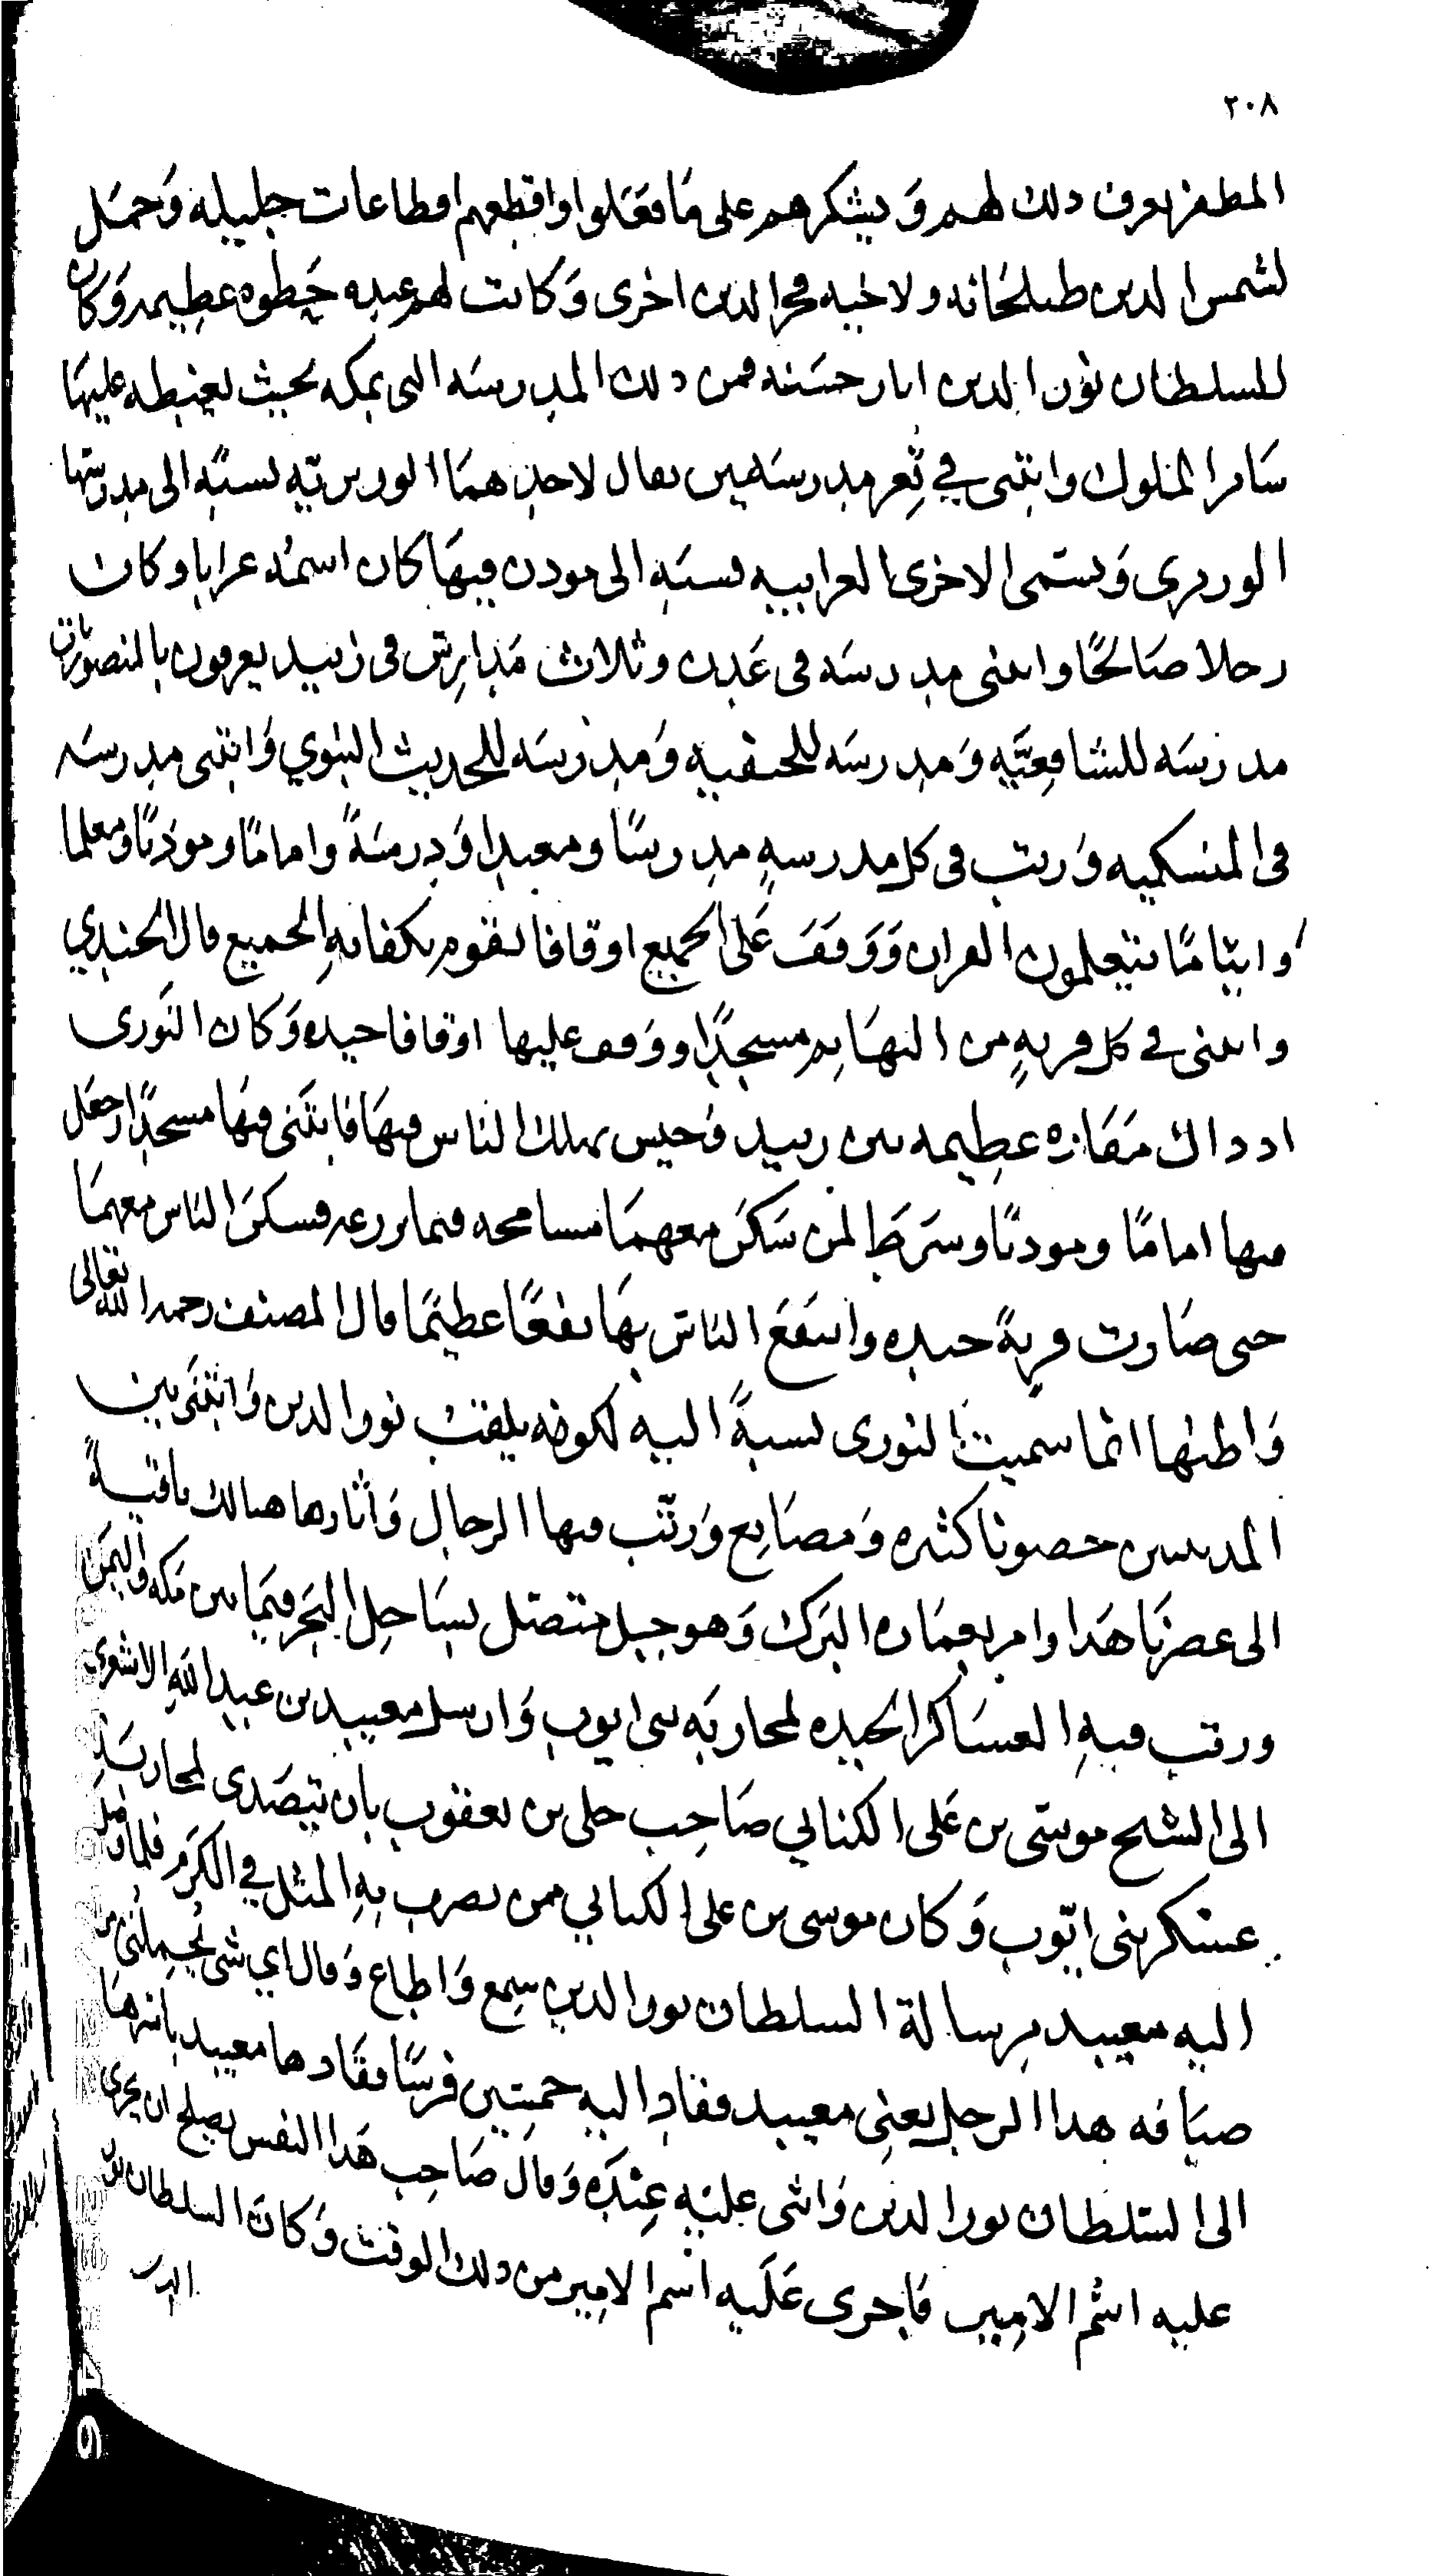 ٢٠٨
المظفر يعرف ذلك لهم وَيشكرهم على مَا فعَلوا واقطعهم اقطاعات جليله وَحمَل
لشمس الدين طبلخانه ولاخيه فخر الدين اخرى وَكانت لهم عنده حَظوه عظيمه وَكان
للسلطان نوُر الدين اثار حسَنه فمن ذلك المدرسَه التى بمكه بحيث يغبطه عليهَا
سَائر الملوك وابتنى في تِعز مدرسَتين يقال لاحدهمَا الوزيريّه نسبَه الى مدرسّها
الوزيرى وَيسَمى الاخرى الغرابيه نسبَه الى موذن فيهَا كان اسمُه غرابا وكان
رجلا صَالحًا وابتنى مدرسَه فى عَدن وثلاث مَدارِسَ فى زبيد يعرفون بالمنصوريّات
مدرسَه للشافعيَّه وَمدرسَه للحنفيه وَمدرسَه للحديث النبوي وَابتنى مدرسَه
فى المنسكيه وَرتب فى كل مدرسهٍ مدرسًا ومعيدا وَدرسَةً وامامًا وموذنًا ومعلما
وايتامًا يتعلمون القران وَوَقفَ عَلى الجميع اوقافا تقوم بكفايهِ الجميع قال الجندي
وابتنى في كل قريهٍ من التهَايم مسجدًا ووَقف عليها اوقافا جيده وَكان النَورى
اذ ذاك مَفَازه عظيمه بين زبيد وَحيس يهلك الناس فيهَا فابتَنى فيهَا مسجدًا وجعَل
فيها امامًا وموذنًا وشرَط لمن سَكنَ معهمَا مسامحه فيما يزرعه فسكنَ الناس معهمَا
حتى صَارت قريةً جيده وانتفعَ الناسَ بهَا نفعًا عظيمًا قال المصنف رحمه الله تعالى
وَاظنها انما سميت النورى نسبةً اليه لكونه يلقب نور الدين وَابتنَى بين
المدينتين حصونا كثيره وَمصَانِع وَرتّب فيها الرجال وَآثارها هنالك باقيةً
الى عصرنا هَذا وامر بعمَاره البرَك وَهو جبل متصَل بسَاحِل البَحر فيمَا بين مَكه وَاليمَن
ورتب فيهِ العسَاكر الجيده لمحاربَه بنى ايوب وَارسل معيبد بن عبد اللهِ الاشعرى
الى الشيخ موسَى بن عَلى الكناني صَاحِب حلى بن يعقوب بان يتصَدى لمحاربَة
عسَكر بنى ايّوب وَكان موسى بن على الكناني ممن يضرب بهِ المثل في الكرَم فلما وصل
اليه معيبد برسالة السلطان نور الدين سمِع وَاطاع وَقال اي شى يُحمِلُنى من
ضيَافه هذا الرجل يعنِى معيبد فقاد اليه خمسِين فرسًا فقَادها معيبد باسرهَا
الى السَلطان نور الدين وَاثنى عليَه عِندَه وَقال صَاحِب هَذا النفس يصلح ان يجرى
عليه اسَم الامِير فاجرى عَليه اسَم الامِير من ذلك الوقت وَكان السلطان نور
الدين